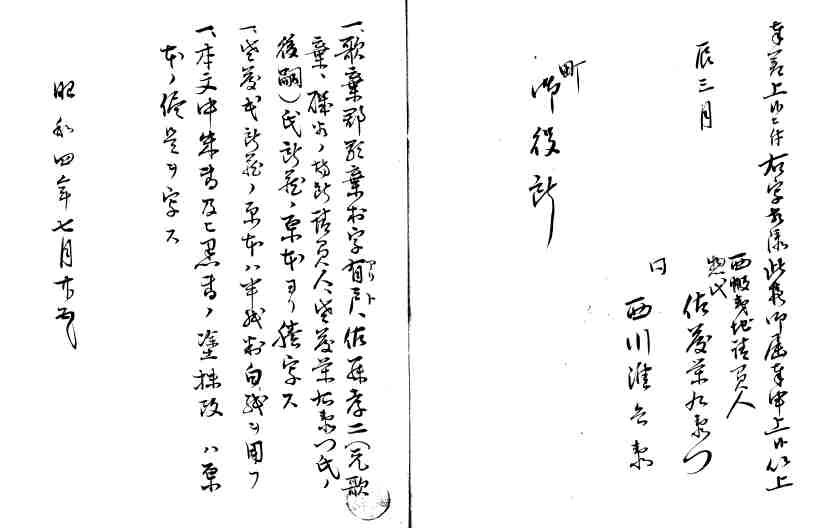 奉差上候上件右字太源此段御届奉申上候以上
辰三月
西蝦夷地請負人
惣代
佐藤栄右衛門
同
西川准兵衛
町
御役所
一、歌棄郡歌棄村字有戸、佐藤孝二(元歌
アリト
棄、磯谷ノ場所請負人、佐藤栄右衛門氏ノ
後嗣)氏所蔵ノ原本ヨリ謄写ス
一、佐藤氏所蔵ノ原本ハ半紙判白紙ヲ用フ
一、本文中朱書及ヒ黒書ノ塗抹改ハ原
本ノ侭是ヲ写ス
昭和四年七月廿五